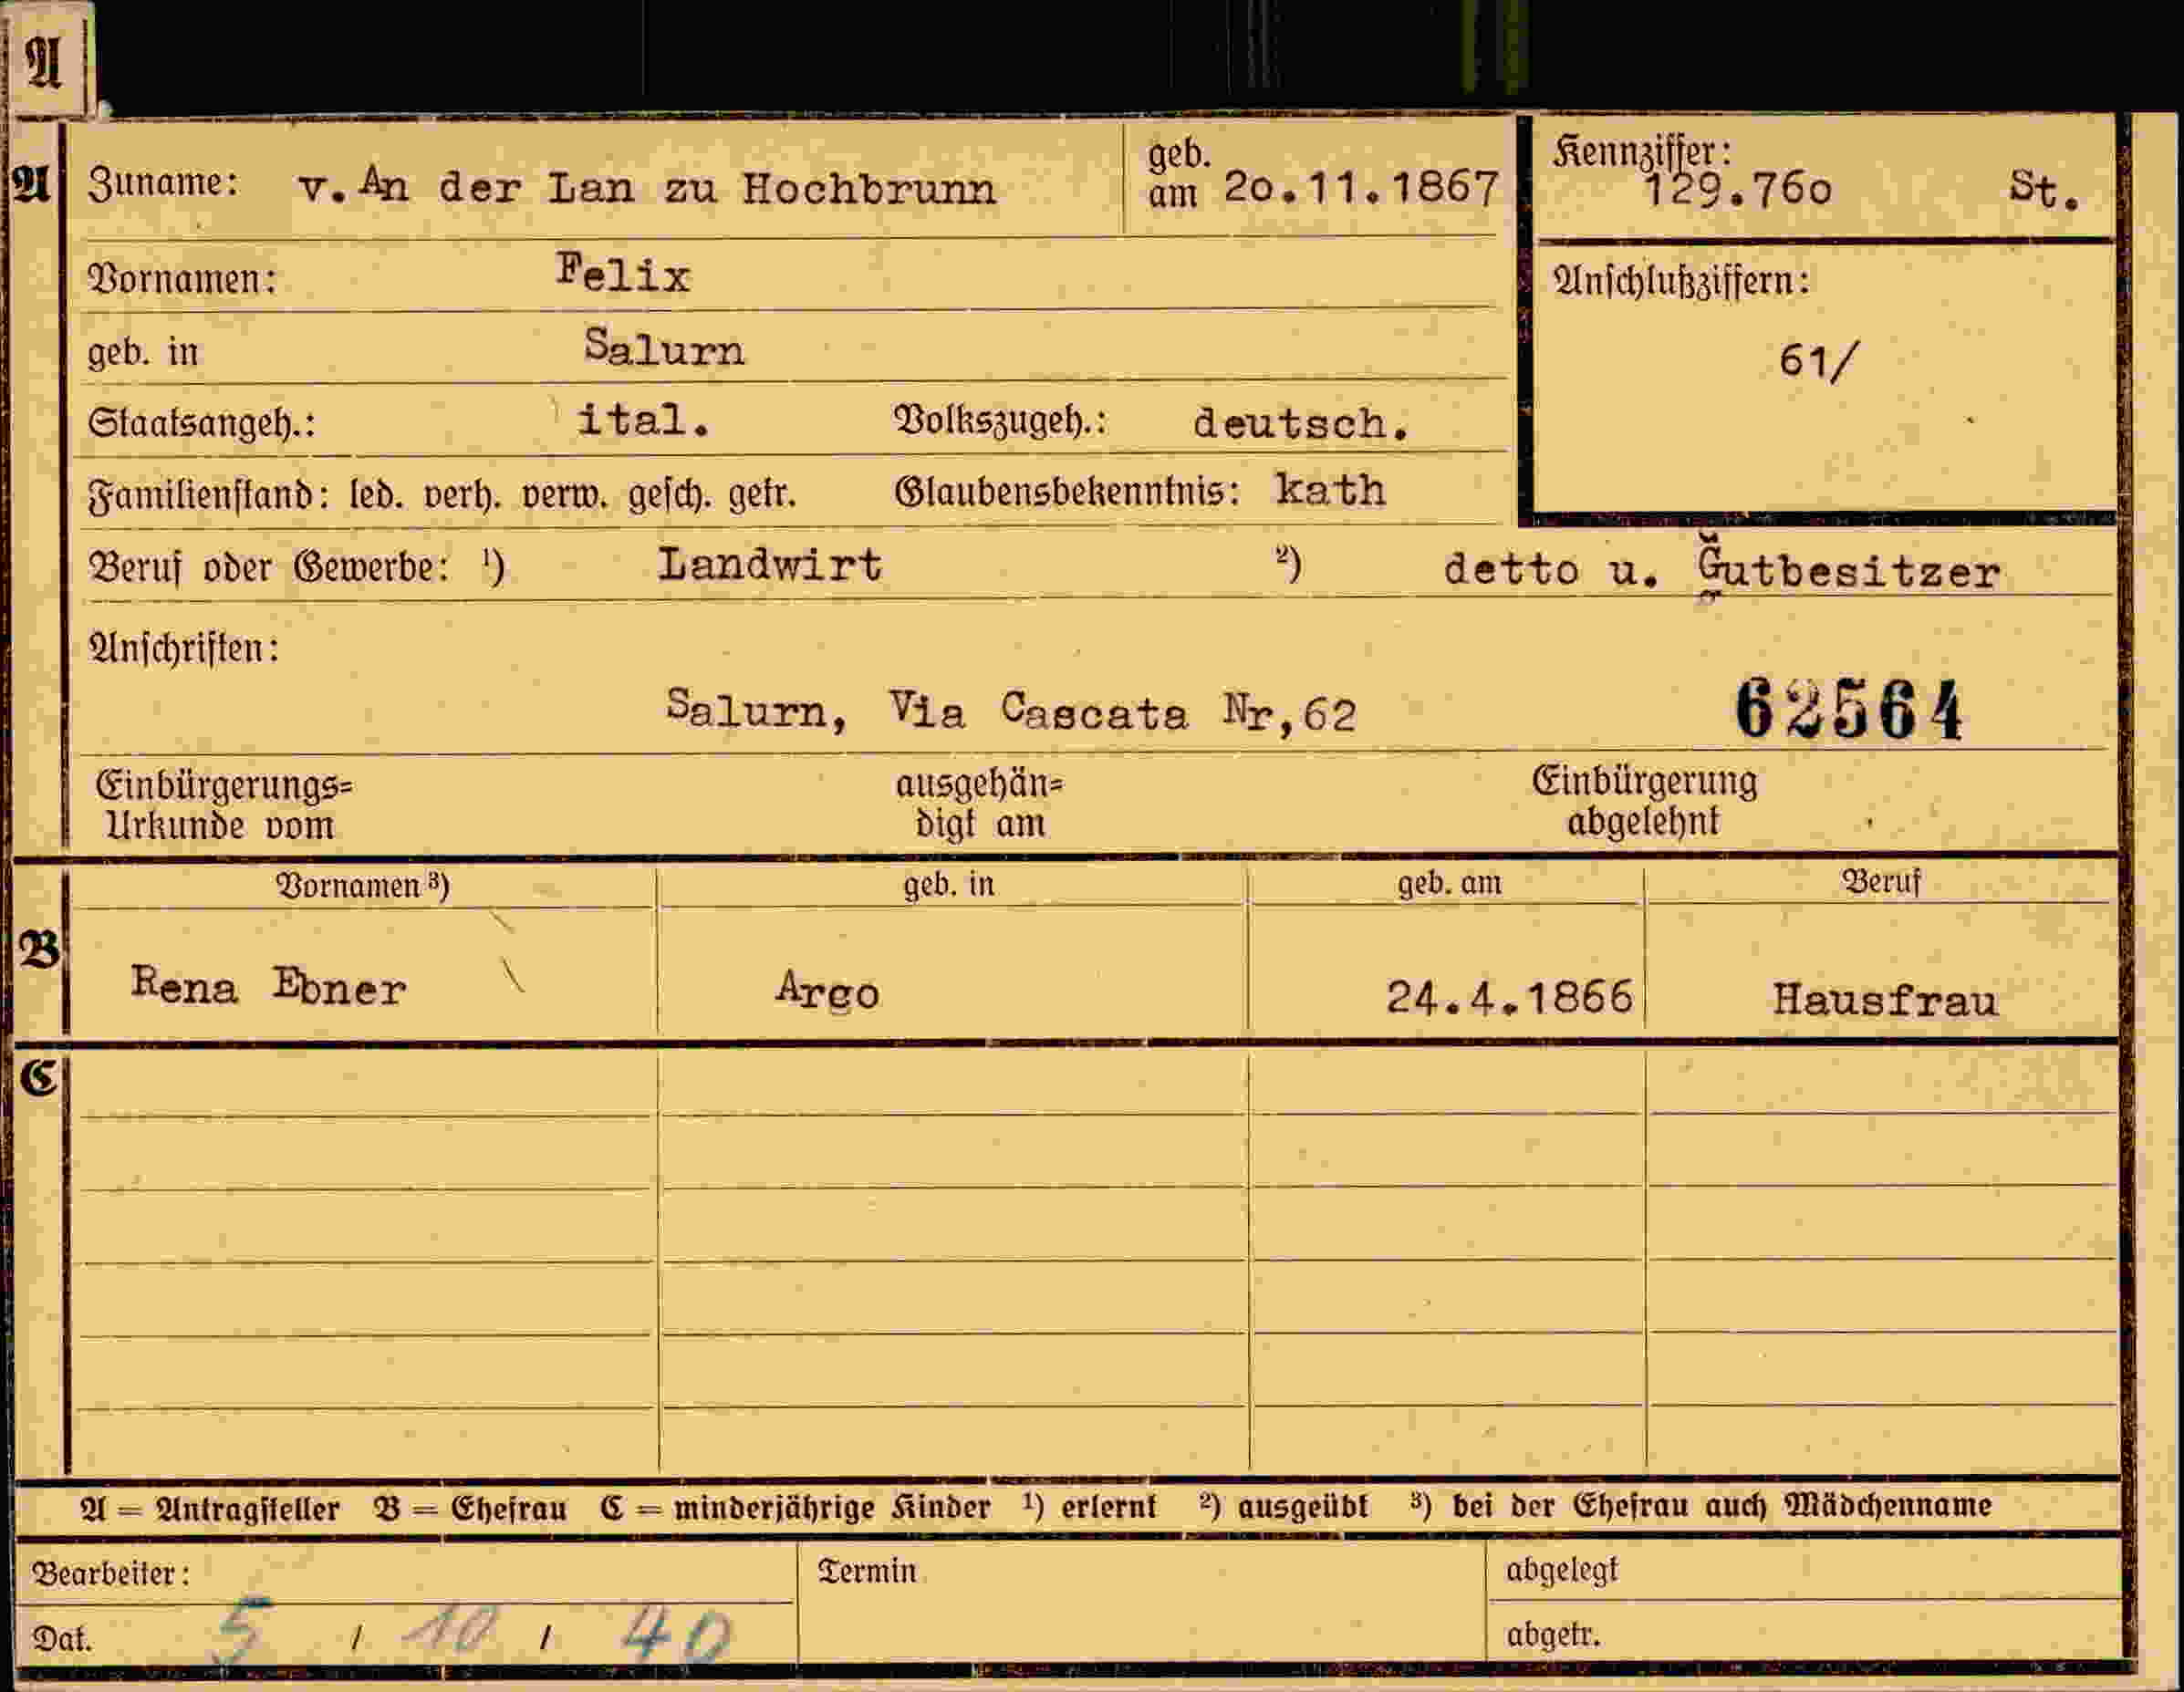 A
A Zuname: v. An der Lan zu Hochbrunn geb. am 20.11.1867 Kennziffer: 129.760 St.
Vornamen: Felix
Anschlußziffern:
geb. in Salurn 61/
Staatsangeh.: ital. Volkszugeh.: deutsch.
Familienstand: led. verh. verw. gesch. getr. Glaubensbekenntnis: kath
Beruf oder Gewerbe: ¹) Landwirt ²) detto u. Gutbesitzer
Anschriften:
Salurn, Via Cascata Nr,62 62564
Einbürgerungs= ausgehän= Einbürgerung
Urkunde vom digt am abgelehnt
Vornamen ³) geb. in geb. am Beruf
B Rena Ebner Argo 24.4.1866 Hausfrau
C
A = Antragsteller B = Ehefrau C = minderjährige Kinder ¹) erlernt ²) ausgeübt ³) bei der Ehefrau auch Mädchenname
Bearbeiter: Termin abgelegt
Dat. 5 / 10 / 40 abgetr.